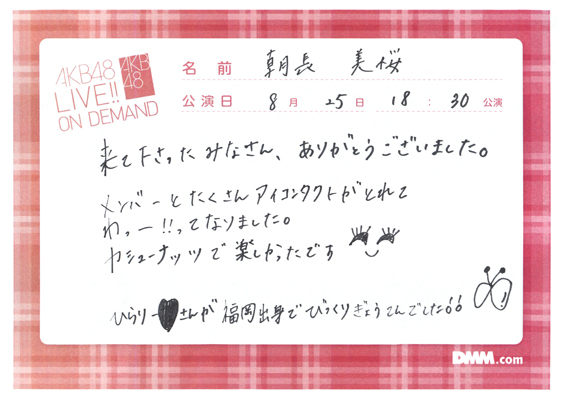 AKB48
LIVE!!
ON DEMAND
AKB
48
名前 朝長 美桜
公演日 8月 25日 18:30公演
来て下さったみなさん、ありがとうございました。
メンバーとたくさんアイコンタクトがとれて
わっー!!ってなりました。
カシューナッツで楽しかったです
ひらりー♥さんが福岡出身でびっくりぎょうてんでした!!
DMM.com